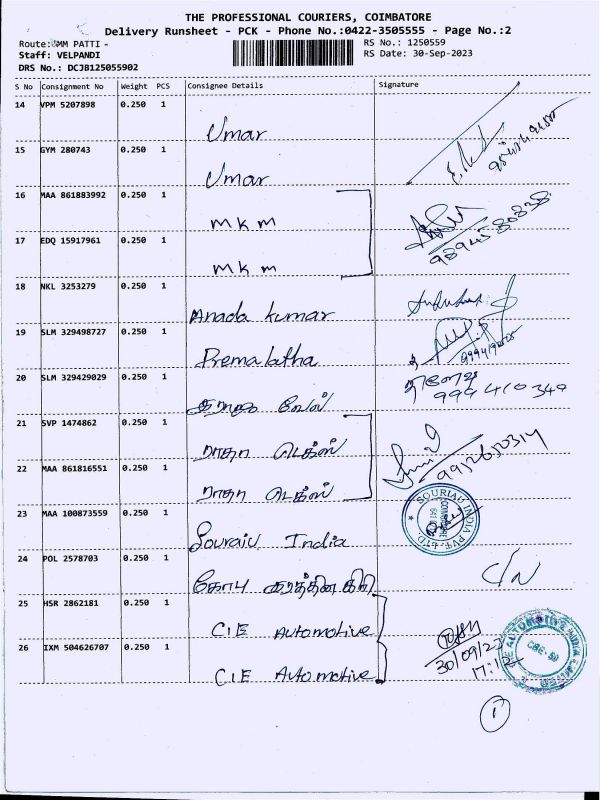 THE PROFESSIONAL COURIERS, COIMBATORE
Delivery Runsheet - PCK - Phone No.:0422-3505555 - Page No.:2
Route: MM PATTI -
RS No.: 1250559
Staff: VELPANDI
RS Date: 30-Sep-2023
DRS No.: DCJB125055902
S No Consignment No Weight PCS Consignee Details Signature
14 VPM 5207898 0.250 1 Umar
15 GYM 280743 0.250 1 Umar
16 MAA 861883992 0.250 1 MKM
17 EDQ 15917961 0.250 1 MKM
18 NKL 3253279 0.250 1 Anada kumar
19 SLM 329498727 0.250 1 Premalatha
20 SLM 329429029 0.250 1 999 410 349
21 SVP 1474862 0.250 1 ராதா டெக்ஸ்
22 MAA 861816551 0.250 1 ராதா டெக்ஸ்
23 MAA 100873559 0.250 1 Souraiu India
SOURIAU INDIA PVT. LTD
24 POL 2578703 0.250 1 கோபி C/N
25 HSR 2862181 0.250 1 CIE Automotive
26 IXM 504626707 0.250 1 CIE Automotive
30/09/23
17:12
1